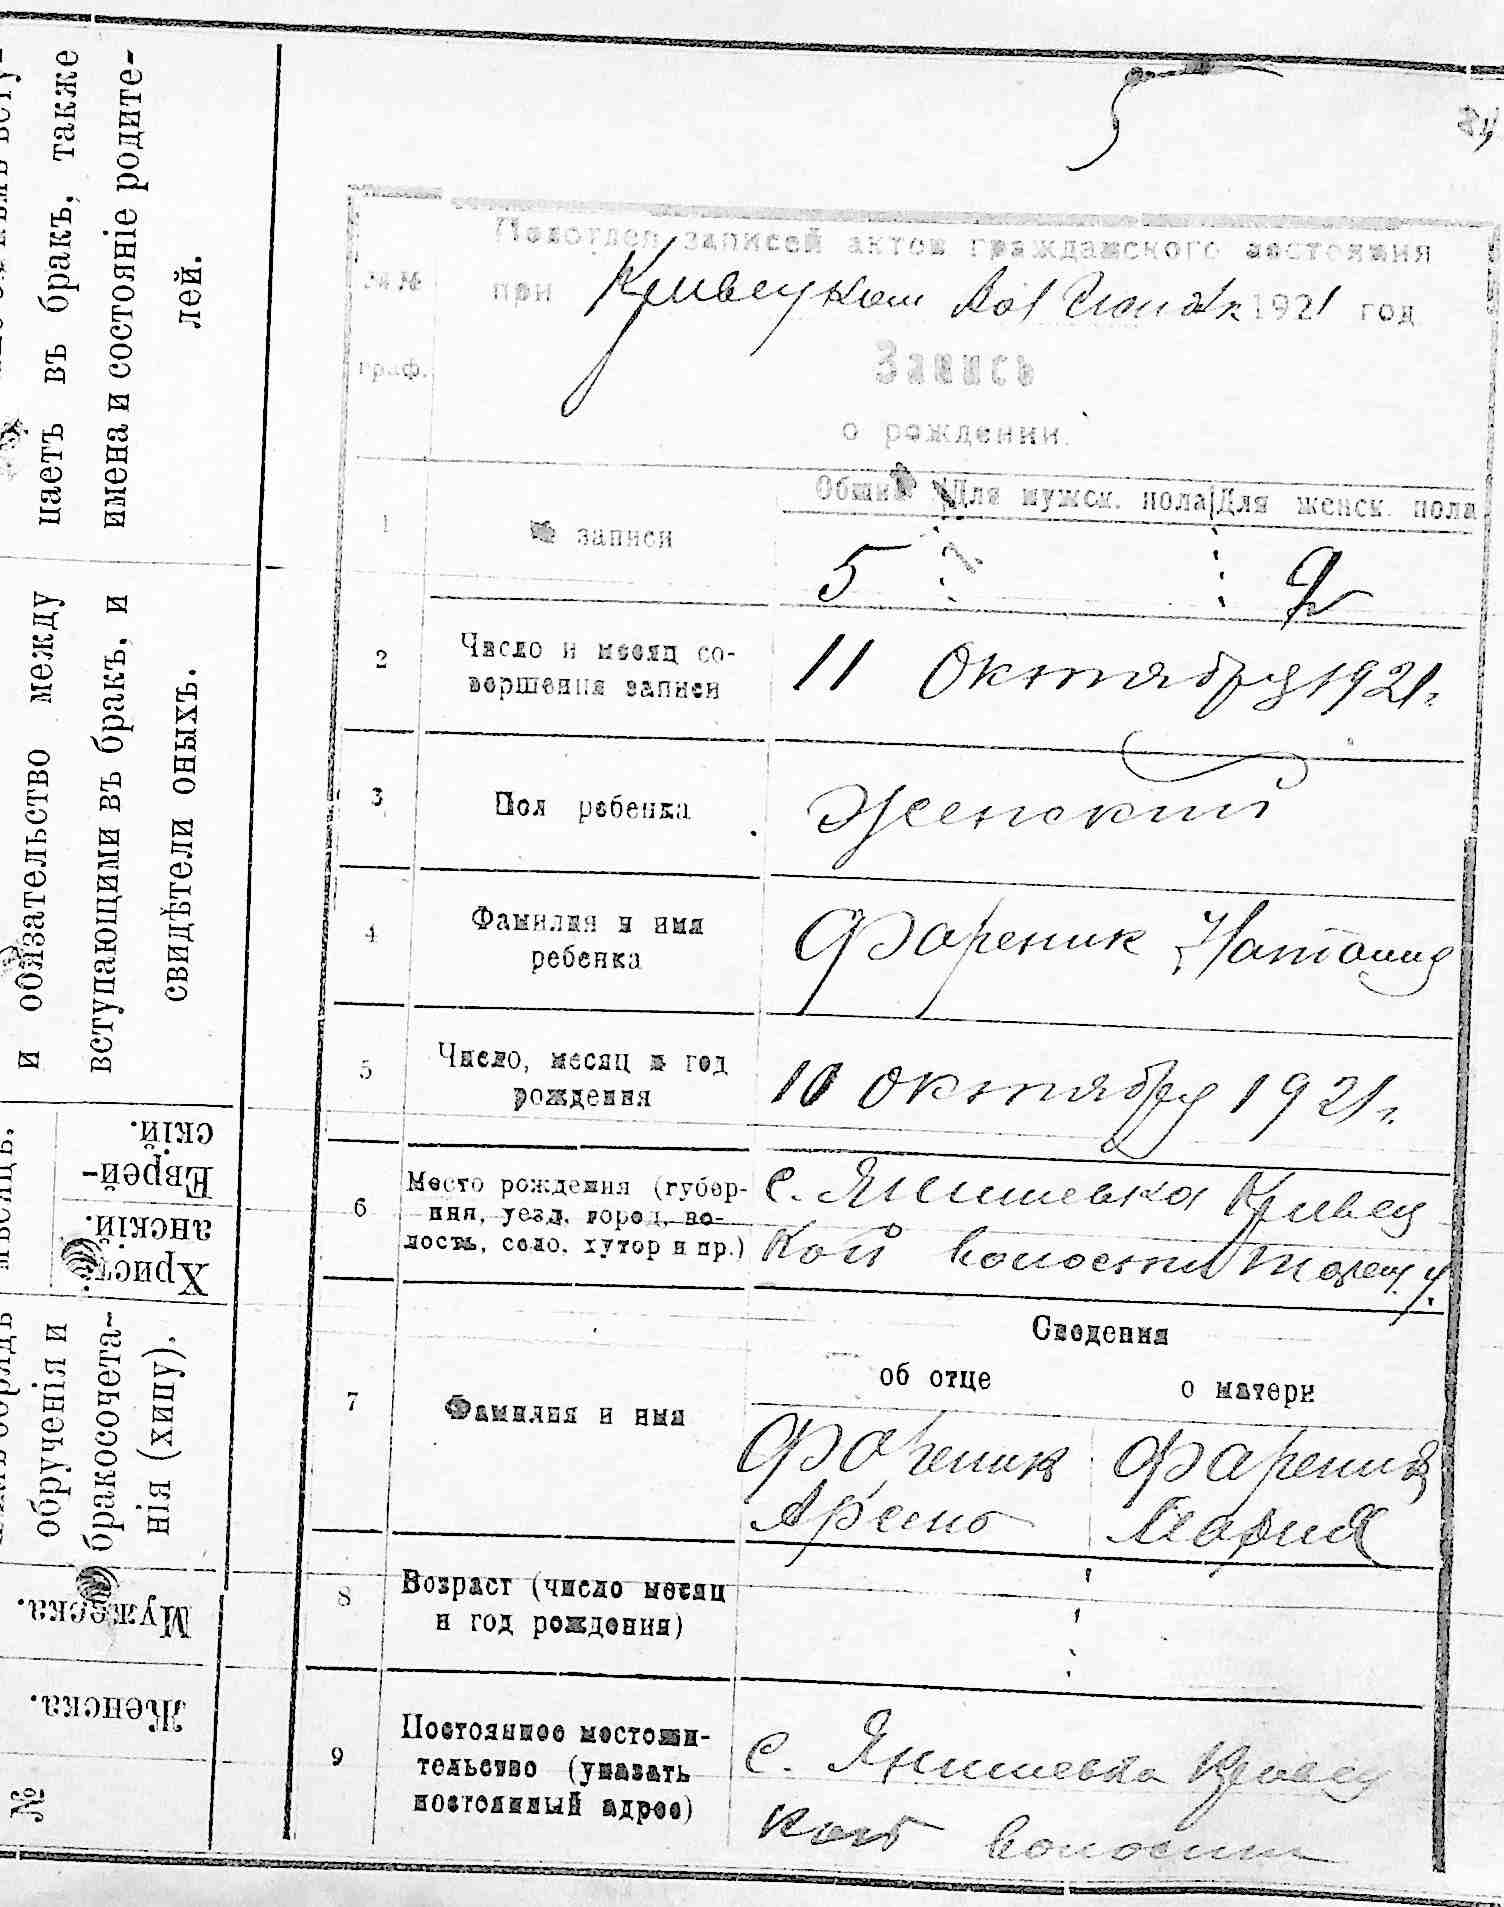 5
Подотдел записей актов гражданского состояния
при Кривецком Вол 1921 год
№№ граф.
Запись
о рождении.
Общий Для мужск. пола Для женск. пола
1 № записи 5 2
2 Число и месяц со-
вершения записи 11 Октября 1921 г.
3 Пол ребенка Женский
4 Фамилия и имя
ребенка Фареник Наталия
5 Число, месяц и год
рождения 10 октября 1921 г.
6 Место рождения (губер-
ния, уезд, город, во-
лость, село, хутор и пр.) с. Янишевка Кривец
кой волости Таращ. у.
Сведения
об отце о матери
7 Фамилия и имя
Фареник Фареник
Арсено Мария
8 Возраст (число месяц
и год рождения)
9 Постоянное местожи-
тельство (указать
постоянный адрес) с. Янишевка Кривец
кой волости
цаетъ въ бракъ, также
имена и состояніе родите-
лей.
и обязательство между
вступающими въ бракъ, и
свидѣтели оныхъ.
мѣсяцъ.
Христ-
анскій.
Еврей-
скій.
обрядъ
обрученія и
бракосочета-
нія (хипу).
Мужеска.
Женска.
№